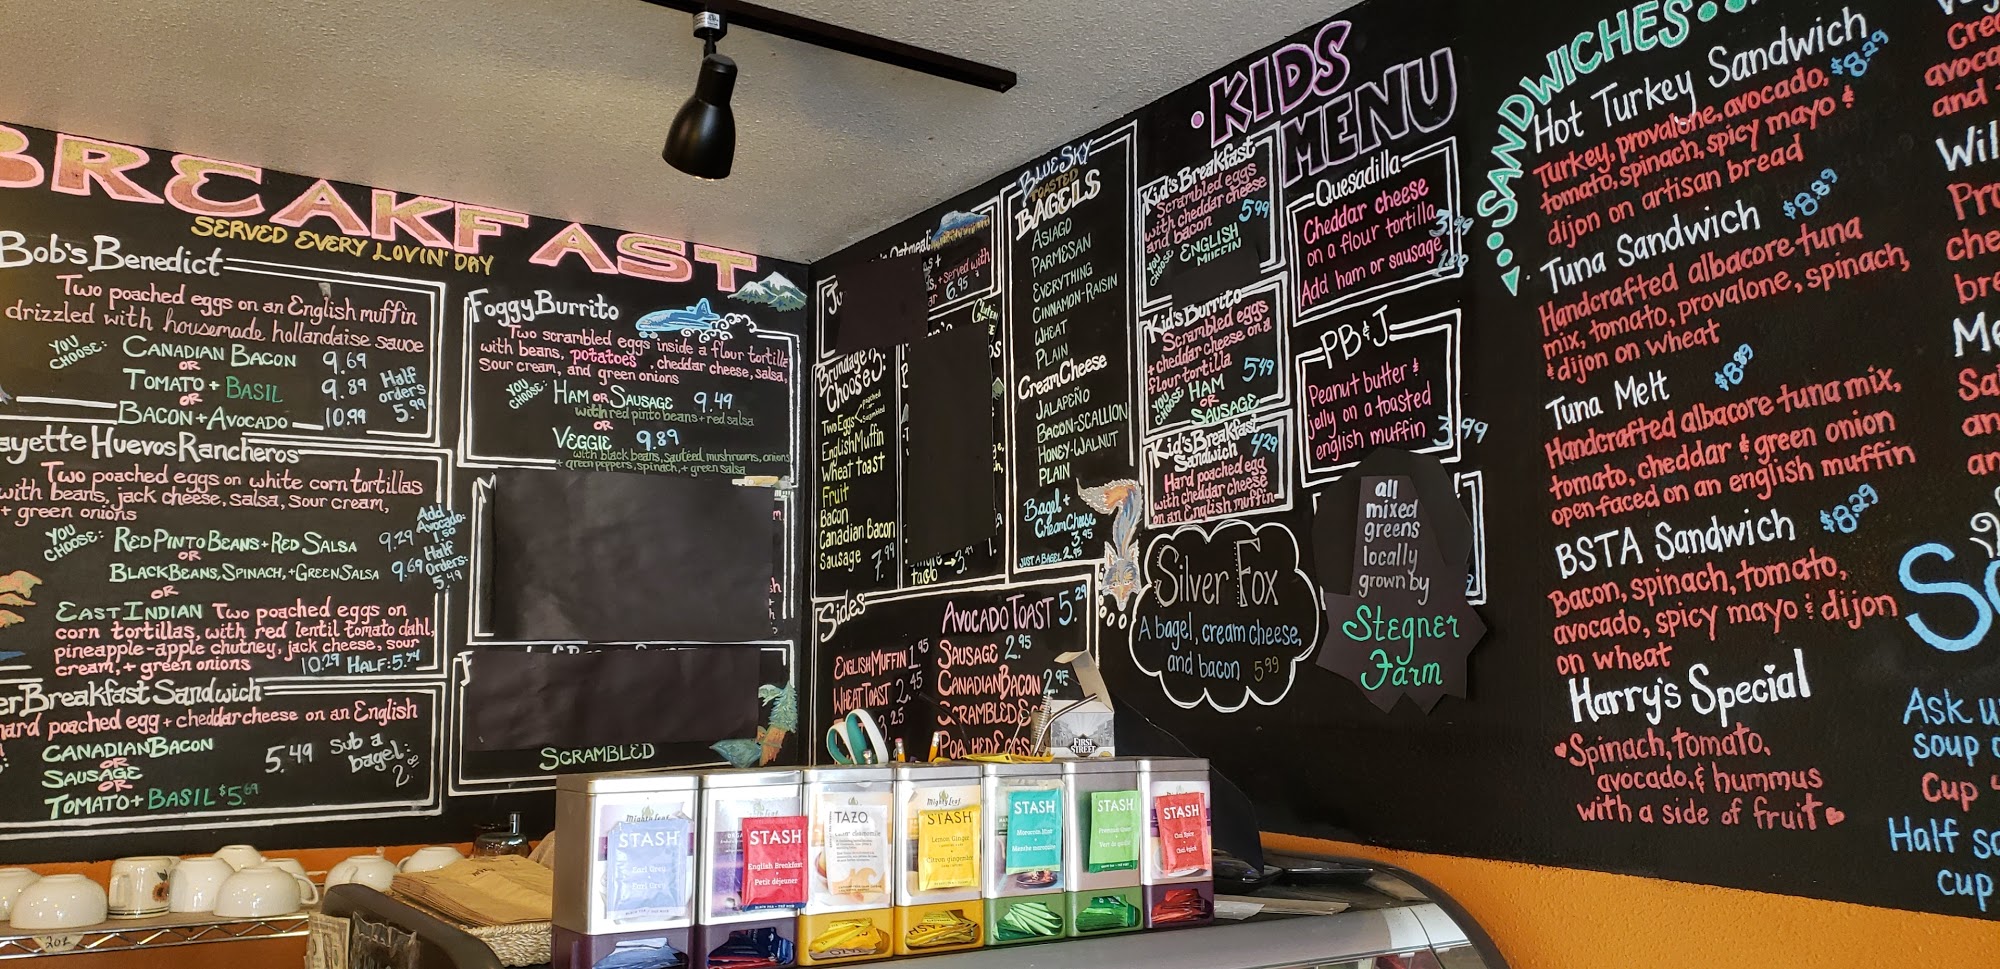 BREAKFAST
SERVED EVERY LOVIN' DAY
Bob's Benedict
Two poached eggs on an English muffin
drizzled with housemade hollandaise sauce
YOU CHOOSE:
CANADIAN BACON 9.69
OR
TOMATO + BASIL 9.89
OR
BACON + AVOCADO 10.99
Half orders 5.99
ayette Huevos Rancheros
Two poached eggs on white corn tortillas
with beans, jack cheese, salsa, sour cream,
+ green onions
YOU CHOOSE:
RED PINTO BEANS + RED SALSA 9.29
OR
BLACK BEANS, SPINACH, + GREEN SALSA 9.69
OR
Add Avocado: 1.50
Half Orders: 5.49
EAST INDIAN Two poached eggs on
corn tortillas, with red lentil tomato dahl,
pineapple-apple chutney, jack cheese, sour
cream, + green onions 10.29 HALF: 5.74
er Breakfast Sandwich
hard poached egg + cheddar cheese on an English
CANADIAN BACON
OR
SAUSAGE 5.49
OR
TOMATO + BASIL $5.69
Sub a
bagel:
Foggy Burrito
Two scrambled eggs inside a flour tortilla
with beans, potatoes, cheddar cheese, salsa,
sour cream, and green onions
YOU CHOOSE:
HAM OR SAUSAGE 9.49
with red pinto beans + red salsa
OR
VEGGIE 9.89
with black beans, sautéed mushrooms, onions
+ green peppers, spinach, + green salsa
SCRAMBLED
Oatmeal
+ served with
6.95
Brundage
Choose 3:
Two Eggs poached
scrambled
English Muffin
Wheat toast
Fruit
Bacon
Canadian Bacon
Sausage 7.99
BLUE SKY
TOASTED
BAGELS
ASIAGO
PARMESAN
EVERYTHING
CINNAMON-RAISIN
WHEAT
PLAIN
CREAM CHEESE
JALAPEÑO
BACON-SCALLION
HONEY-WALNUT
PLAIN
Bagel +
Cream Cheese
3.95
JUST A BAGEL 2.95
Sides
ENGLISH MUFFIN 1.95
WHEAT TOAST 2.45
3.25
AVOCADO TOAST 5.29
SAUSAGE 2.95
CANADIAN BACON 2.95
SCRAMBLED
POACHED EGGS
KIDS
MENU
Kid's Breakfast
Scrambled eggs
with cheddar cheese
and bacon 5.99
YOU CHOOSE
ENGLISH
MUFFIN
Kid's Burrito
Scrambled eggs
+ cheddar cheese on a
flour tortilla 5.49
YOU CHOOSE
HAM
OR
SAUSAGE
Kid's Breakfast
Sandwich 4.29
Hard poached egg
with cheddar cheese
on an English muffin
Quesadilla
Cheddar cheese
on a flour tortilla 3.99
Add ham or sausage
PB & J
Peanut butter &
jelly on a toasted
english muffin 3.99
Silver Fox
A bagel, cream cheese,
and bacon 5.99
all
mixed
greens
locally
grown by
Stegner
Farm
SANDWICHES
Hot Turkey Sandwich
$8.29
Turkey, provalone, avocado,
tomato, spinach, spicy mayo &
dijon on artisan bread
Tuna Sandwich $8.89
Handcrafted albacore tuna
mix, tomato, provalone, spinach,
& dijon on wheat
Tuna Melt $8.99
Handcrafted albacore tuna mix,
tomato, cheddar & green onion
open-faced on an english muffin
BSTA Sandwich $8.29
Bacon, spinach, tomato,
avocado, spicy mayo & dijon
on wheat
Harry's Special
Spinach, tomato,
avocado, & hummus
with a side of fruit
Ask u
soup
Cup
Half
cup
FIRST
STREET
Mighty Leaf
STASH
Earl Grey
Earl Grey
STASH
English Breakfast
Petit déjeuner
TAZO
chamomile
Mighty Leaf
STASH
Lemon Ginger
Citron gingembre
STASH
Moroccan Mint
Menthe marocaine
STASH
Premium Green
Vert de qualité
Mighty Leaf
STASH
Chai Spice
Chai épicé
201